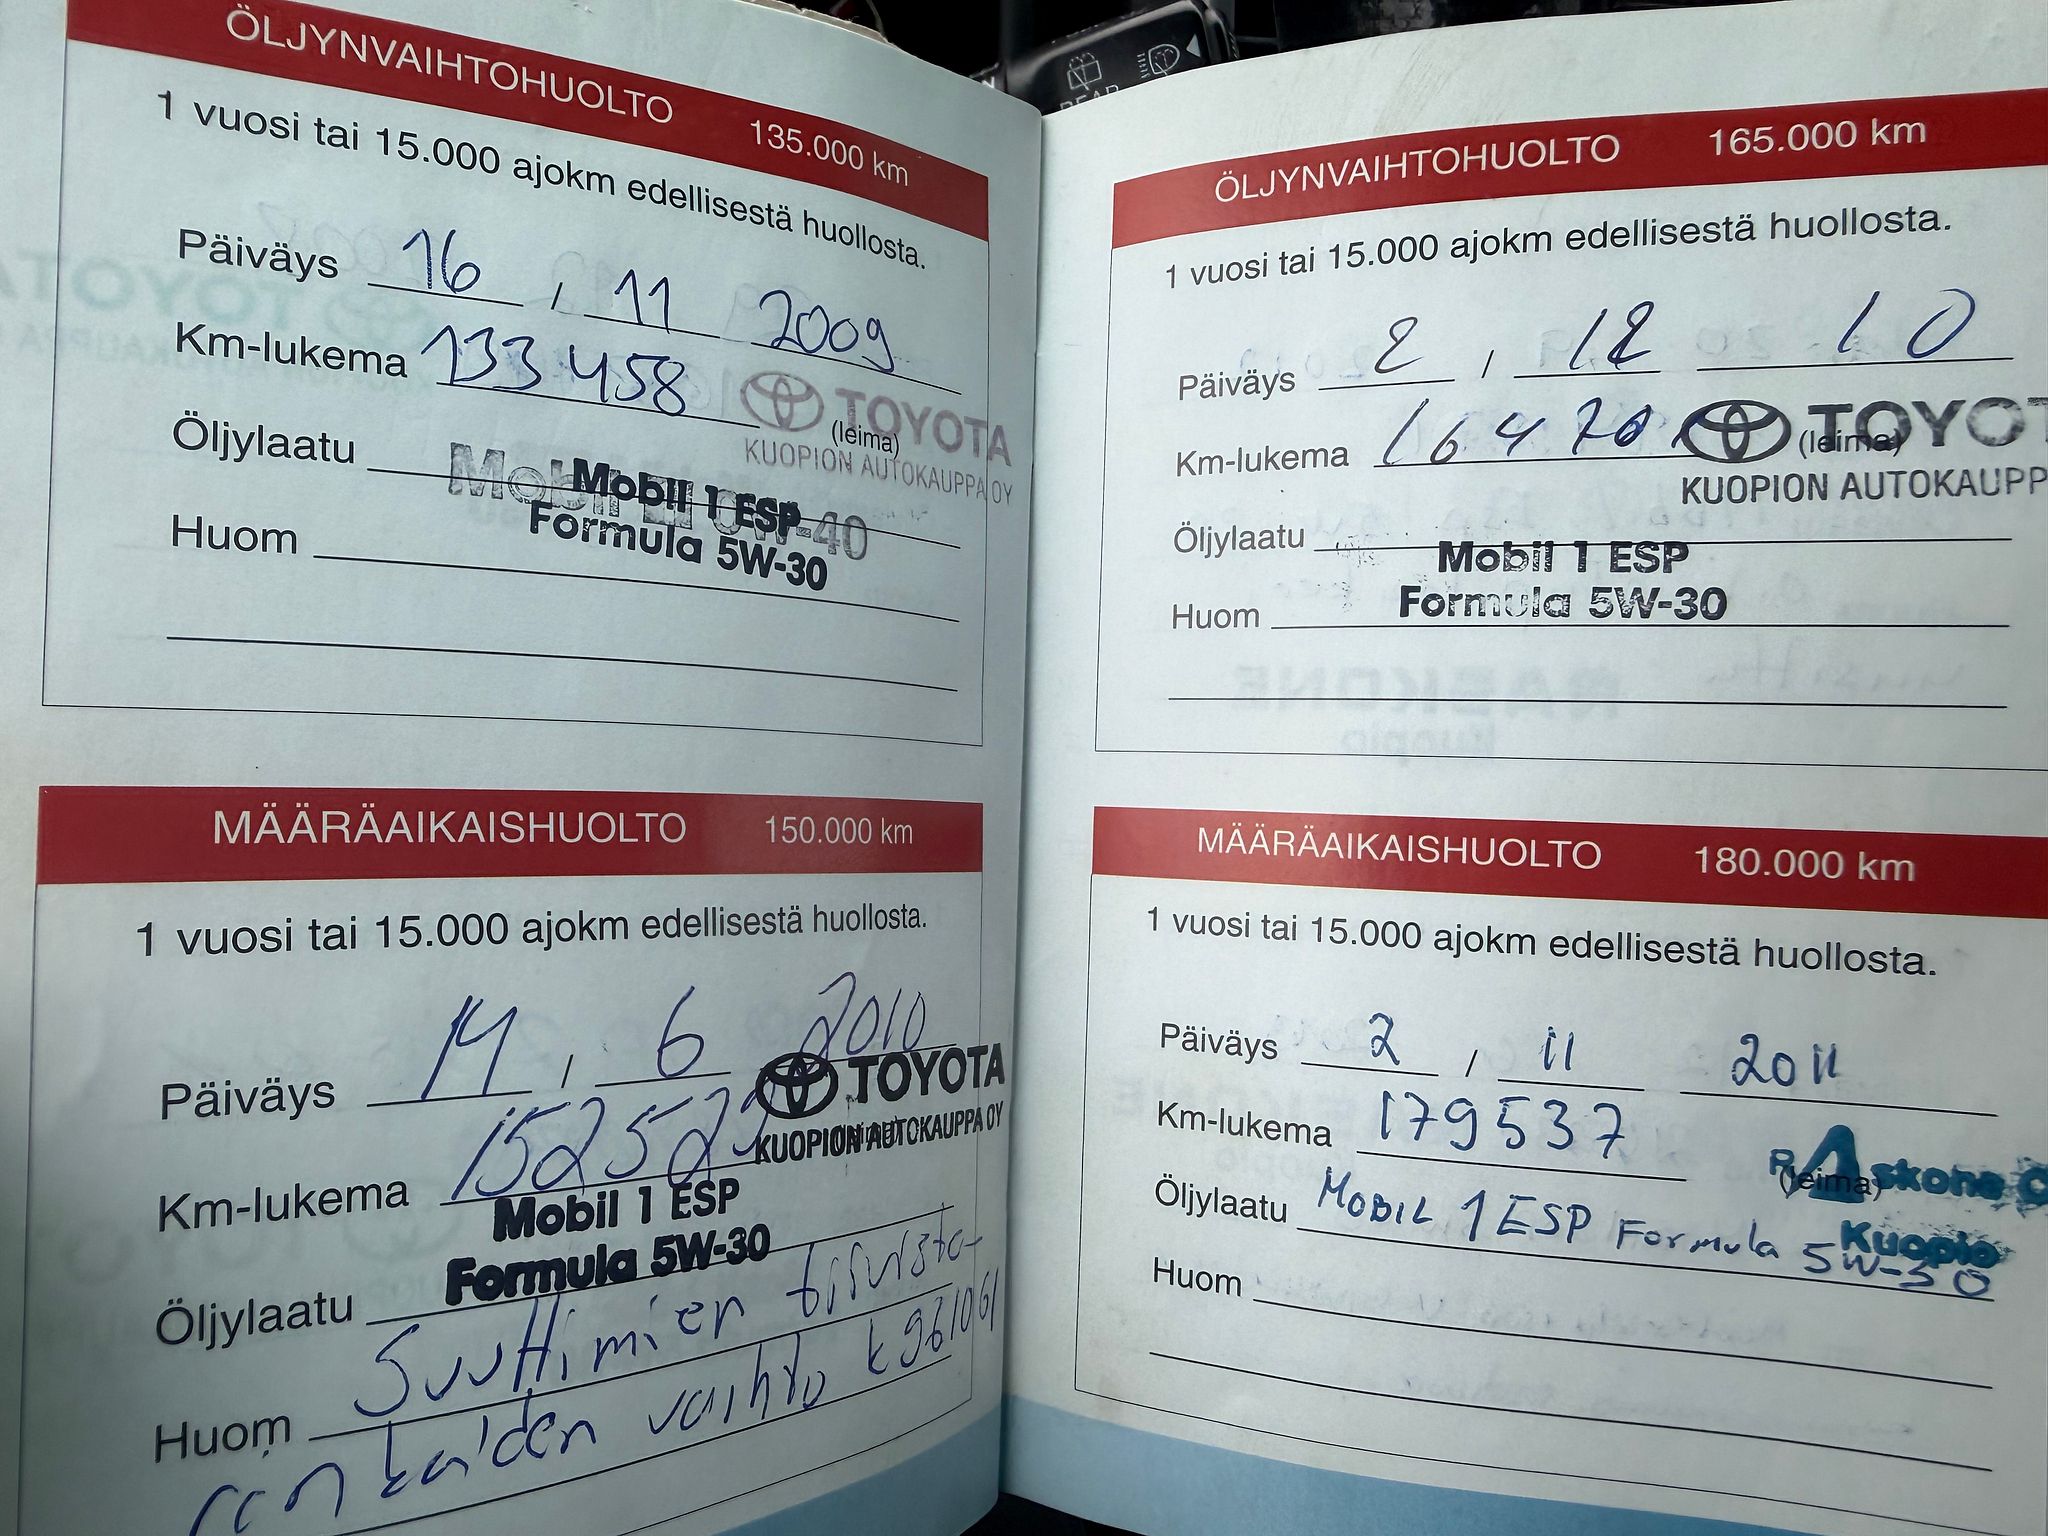 ÖLJYNVAIHTOHUOLTO 135.000 km
1 vuosi tai 15.000 ajokm edellisestä huollosta.
Päiväys 16 , 11 2009
Km-lukema 133 458
TOYOTA
(leima)
KUOPION AUTOKAUPPA OY
Öljylaatu
Mobil 1 ESP
Formula 5W-30
Huom
MÄÄRÄAIKAISHUOLTO 150.000 km
1 vuosi tai 15.000 ajokm edellisestä huollosta.
Päiväys 14 , 6 2010
TOYOTA
KUOPION AUTOKAUPPA OY
Km-lukema 152529
Mobil 1 ESP
Formula 5W-30
Öljylaatu
Huom Suuttimien tiiviste-
renkaiden vaihto
ÖLJYNVAIHTOHUOLTO 165.000 km
1 vuosi tai 15.000 ajokm edellisestä huollosta.
Päiväys 2 , 12 10
Km-lukema
TOYOT
(leima)
KUOPION AUTOKAUPP
Öljylaatu
Mobil 1 ESP
Formula 5W-30
Huom
MÄÄRÄAIKAISHUOLTO 180.000 km
1 vuosi tai 15.000 ajokm edellisestä huollosta.
Päiväys 2 , 11 2011
Km-lukema 179537
(leima)
Öljylaatu MOBIL 1 ESP Formula 5W-30
Kuopio
Huom